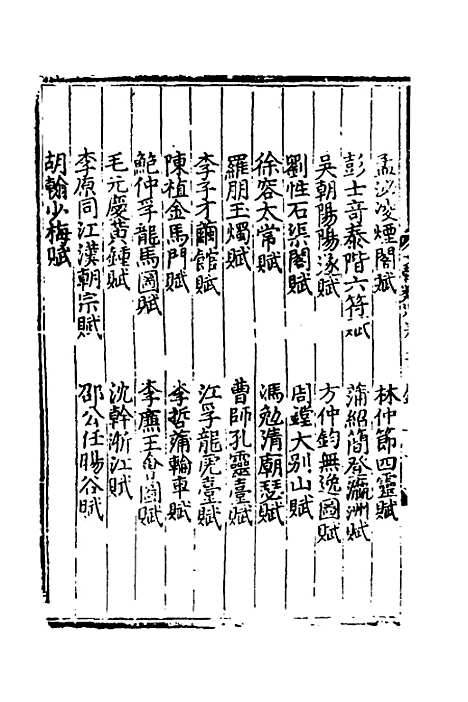 孟泌凌煙閣賦　林仲節四靈賦
彭士奇泰階六符賦　蒲紹簡登瀛洲賦
吳朝陽陽燧賦　方仲鈞無逸圖賦
劉性石渠閣賦　周鏜大別山賦
徐容太常賦　馮勉清廟瑟賦
羅朋玉燭賦　曹師孔靈臺賦
李子才繭館賦　江孚龍虎臺賦
陳植金馬門賦　李哲蒲輪車賦
鮑仲孚龍馬圖賦　李廉王會圖賦
毛元慶黃鍾賦　沈幹浙江賦
李原同江漢朝宗賦　邵公任暘谷賦
胡翰少梅賦